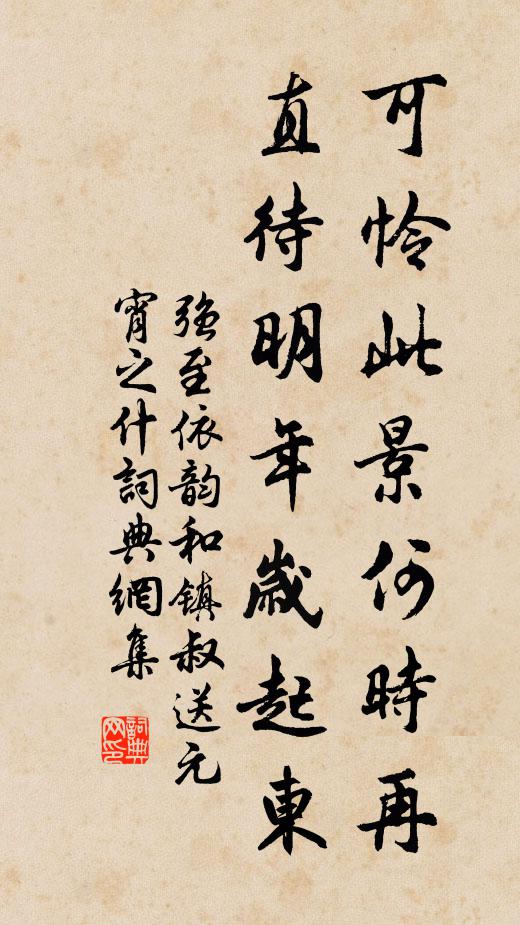 可怜此景何時再
直待明年歲起東
强至依韵和鎮叔送元
宵之什詞典網集
詞典网印